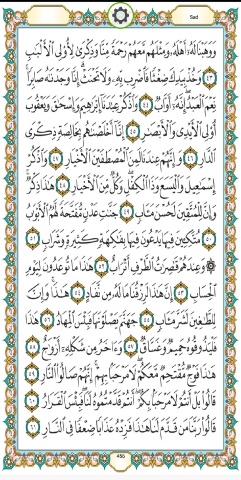 Sad
ووهبنا له أهله ومثلهم معهم رحمة منا وذكرى لأولي الألبب
٤٣ وخذ بيدك ضغثا فاضرب به ولا تحنث إنا وجدنه صابرا
نعم العبد إنه أواب ٤٤ واذكر عبدنا إبرهيم وإسحق ويعقوب
أولي الأيدي والأبصر ٤٥ إنا أخلصنهم بخالصة ذكرى
الدار ٤٦ وإنهم عندنا لمن المصطفين الأخيار ٤٧ واذكر
إسمعيل واليسع وذا الكفل وكل من الأخيار ٤٨ هذا ذكر
وإن للمتقين لحسن مئاب ٤٩ جنت عدن مفتحة لهم الأبوب
٥٠ متكئين فيها يدعون فيها بفكهة كثيرة وشراب ٥١
۞ وعندهم قصرت الطرف أتراب ٥٢ هذا ما توعدون ليوم
الحساب ٥٣ إن هذا لرزقنا ما له من نفاد ٥٤ هذا وإن
للطغين لشر مئاب ٥٥ جهنم يصلونها فبئس المهاد ٥٦ هذا
فليذوقوه حميم وغساق ٥٧ وءاخر من شكله أزوج ٥٨
هذا فوج مقتحم معكم لا مرحبا بهم إنهم صالوا النار ٥٩
قالوا بل أنتم لا مرحبا بكم أنتم قدمتموه لنا فبئس القرار ٦٠
قالوا ربنا من قدم لنا هذا فزده عذابا ضعفا في النار ٦١
456